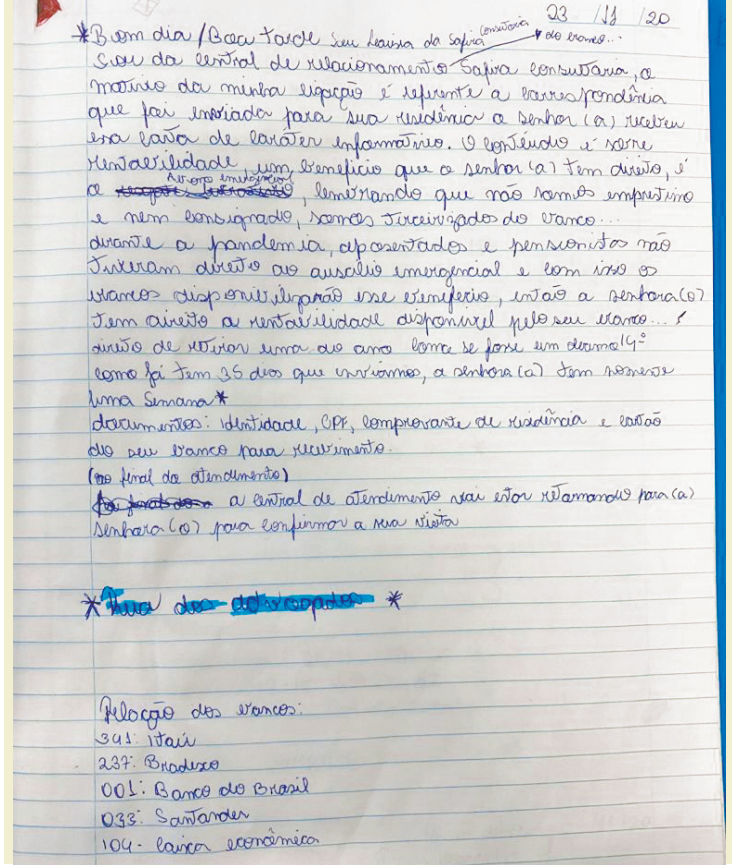 23/11/20
*Bom dia/Boa tarde sou Laviria da Safira consultoria do banco...
Sou da central de relacionamento Safira consultaria, o
motivo da minha ligação é referente a correspondência
que foi enviada para sua residência a senhor(a) recebeu
essa carta de caráter informativo. O contéudio é sobre
rentabilidade um beneficio que o senhor(a) tem direto, é
o abono emergencial, lembrando que não somos emprestimo
e nem consignado, somos terceirizados do banco...
durante a pandemia, aposentados e pensionistas não
tiveram direito ao auxilio emergencial e com isso os
bancos disponibilizarão esse beneficio, então a senhora(o)
tem direito a rentabilidade disponivel pelo seu banco...
direito de retirar uma ao ano como se fosse um decimo 14º
como já tem 35 dias que enviamos, a senhora(a) tem somente
uma Semana*
documentos: identidade, CPF, comprovante de residência e cartão
do seu banco para recebimento.
(no final do atendimento)
a central de atendimento vai estar retornando para(a)
senhora(o) para confirmar a sua visita
*Rua dos advogados*
Relação dos bancos:
341: Itaú
237: Bradesco
001: Banco do Brasil
033: Santander
104- Caixa econômica